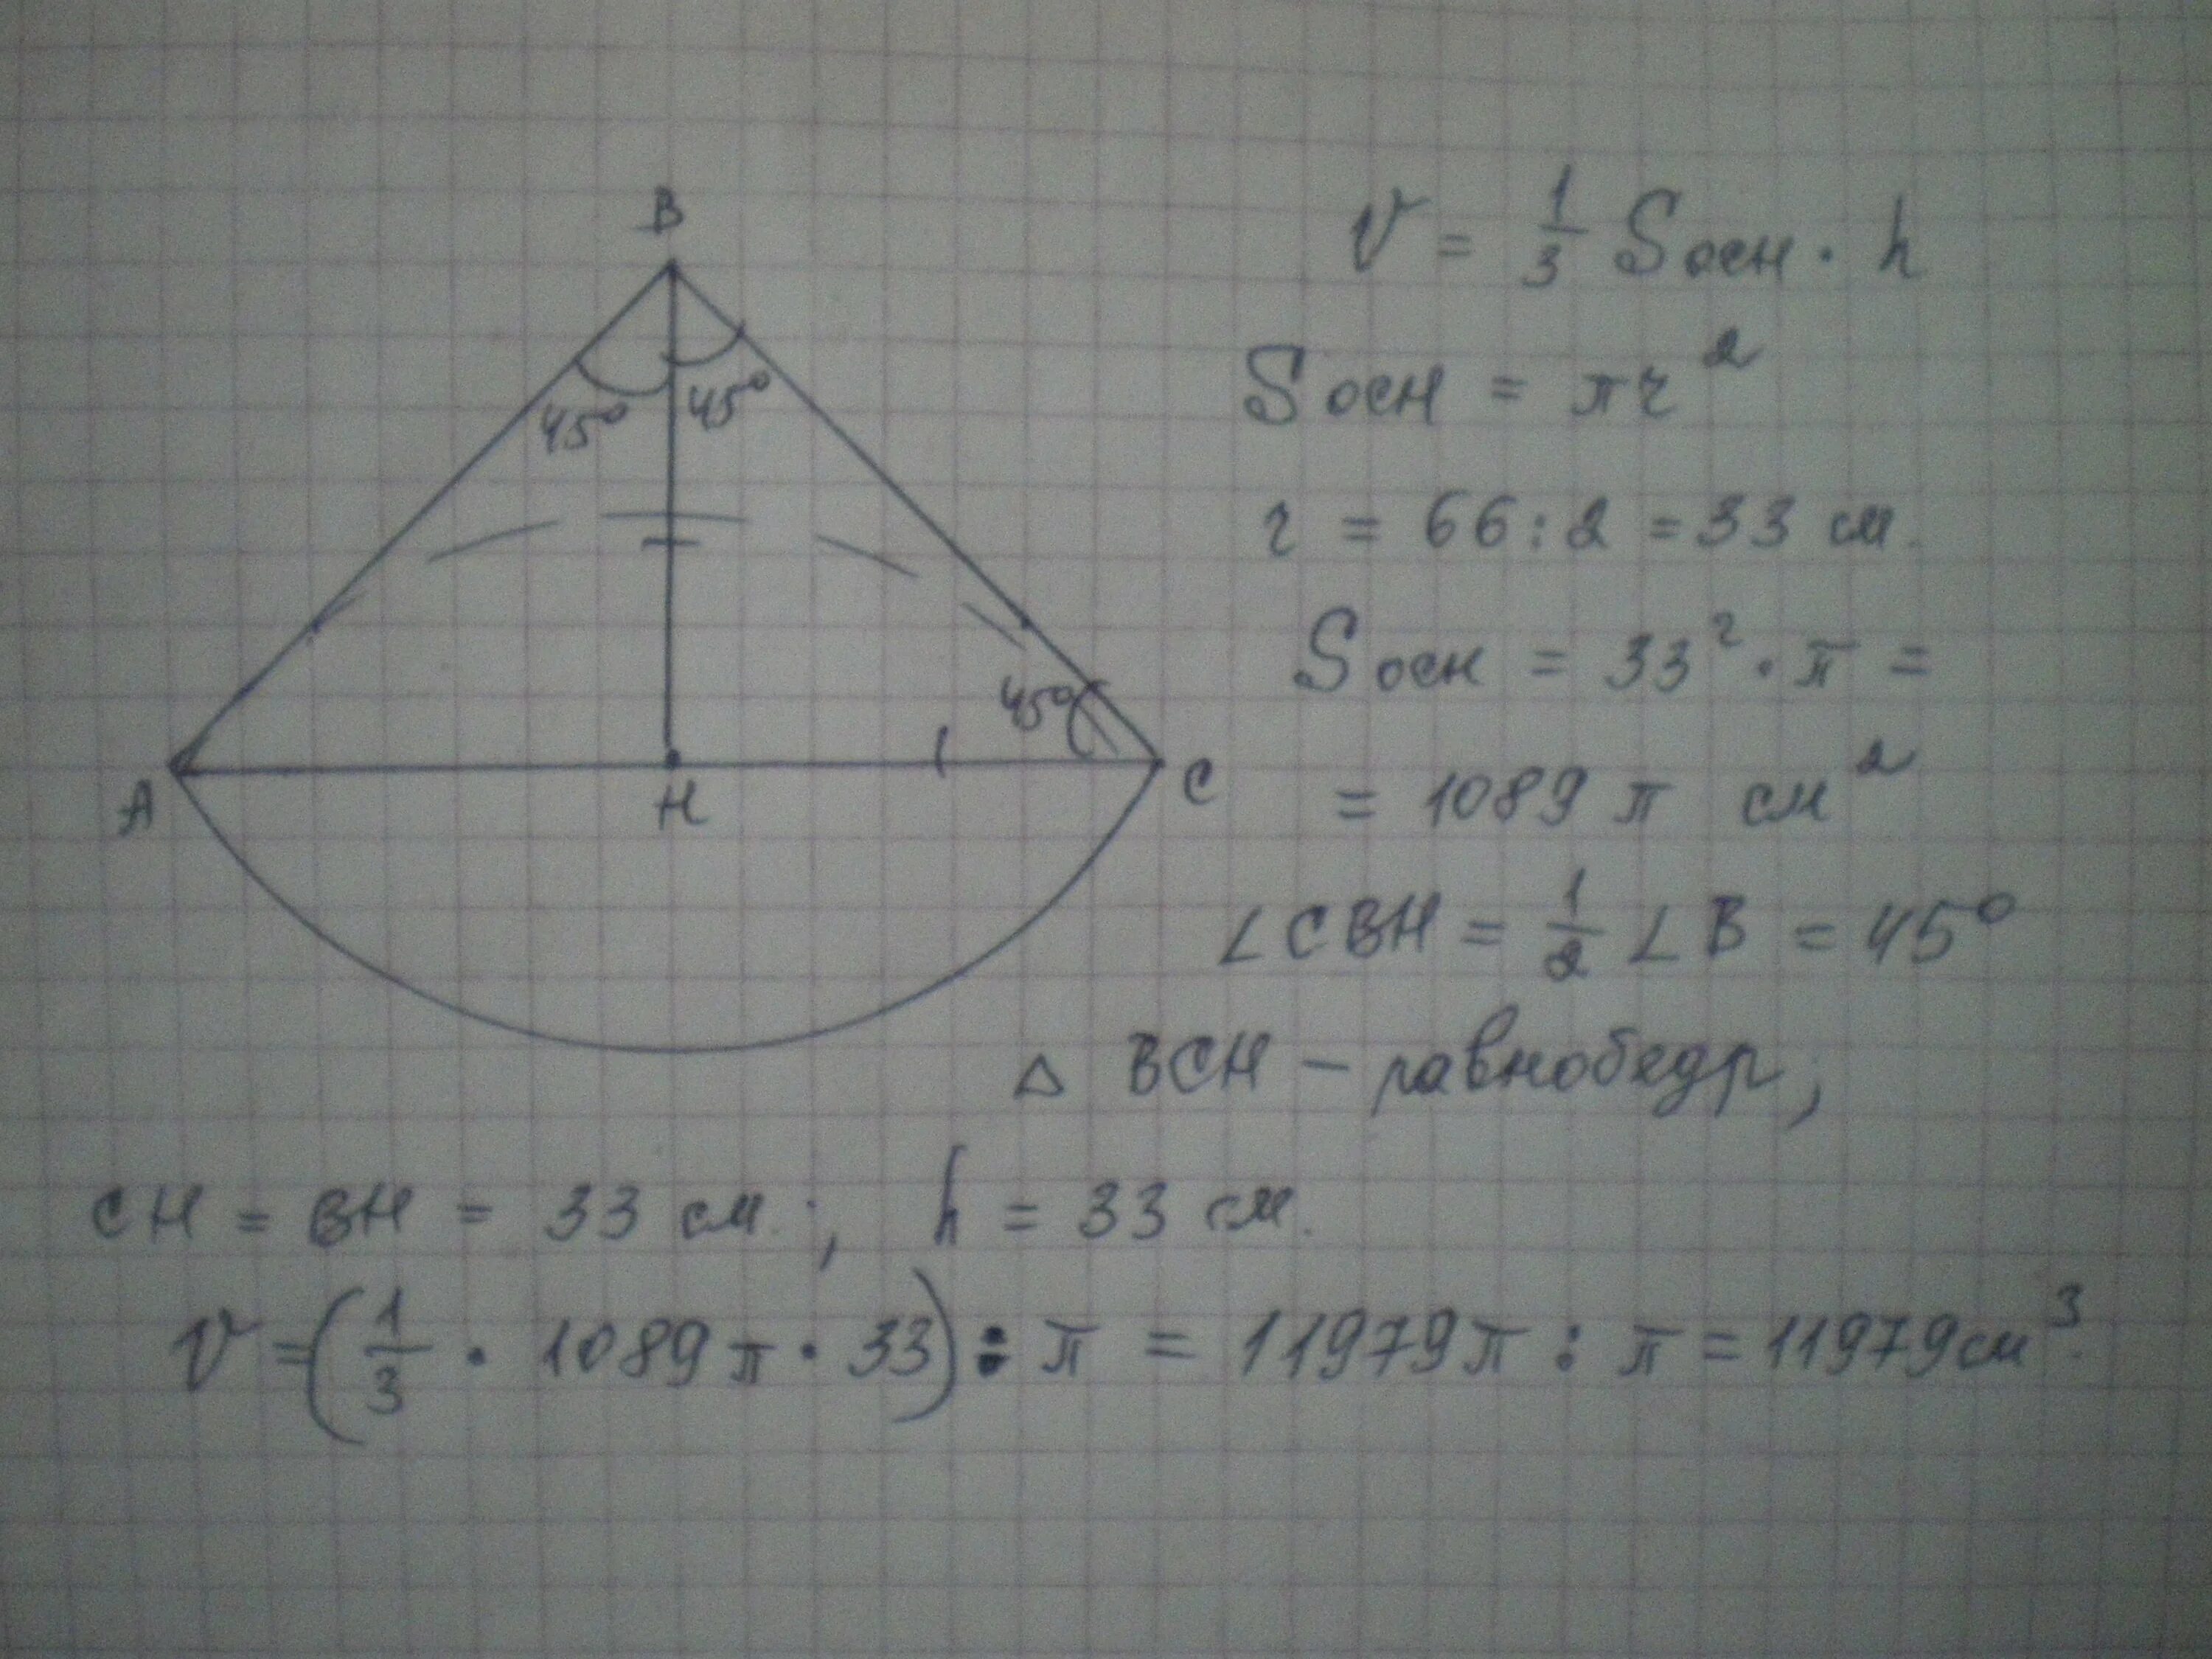 B
45° 45°
45°
A
H
C
V = 1/3 Sосн · h
Sосн = πr²
r = 66 : 2 = 33 см.
Sосн = 33² · π =
= 1089 π см²
∠CBH = 1/2 ∠B = 45°
△ BCH – равнобедр;
CH = BH = 33 см.; h = 33 см.
V = (1/3 · 1089 π · 33) : π = 11979 π : π = 11979 см³.